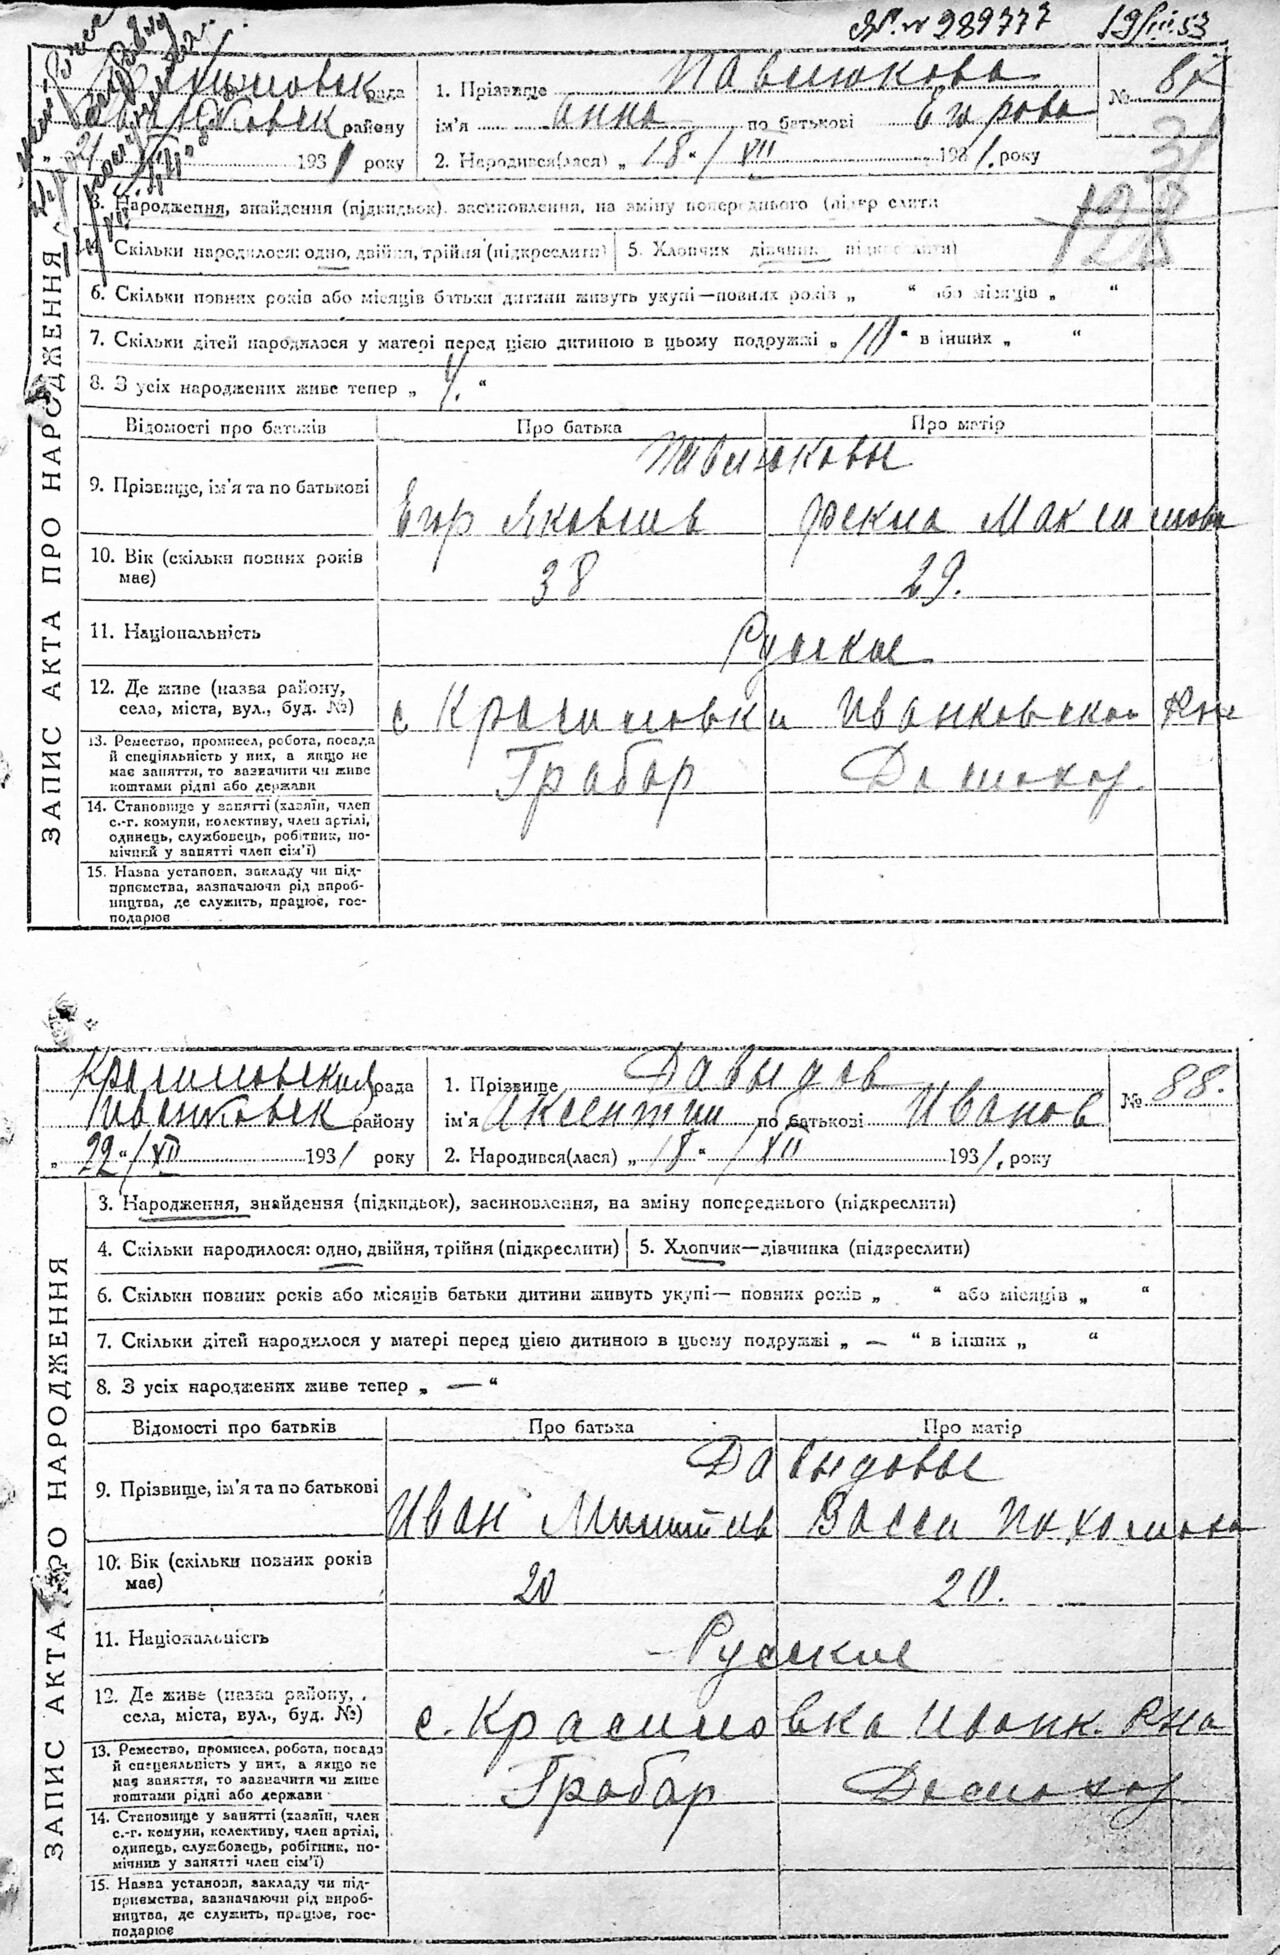 № 289777 19/III 53
рада
району
1931 року
1. Прізвище Павлюкова
ім'я Анна по батькові Егорова
2. Народився(лася) „ 18 “ / XII 1931. року
№ 87
31
128
ЗАПИС АКТА ПРО НАРОДЖЕННЯ
3. Народження, знайдення (підкидьок), засиновлення, на зміну попереднього
4. Скільки народилося: одно, двійня, трійня (підкреслити)
5. Хлопчик дівчинка
6. Скільки повних років або місяців батьки дитини живуть укупі—повних років „ “ або місяців „ “
7. Скільки дітей народилося у матері перед цією дитиною в цьому подружжі „ 10 “ в інших „ “
8. З усіх народжених живе тепер „ 4. “
Відомості про батьків Про батька Про матір
Павлюковы
9. Прізвище, ім'я та по батькові
Егор Яковлев Фекла Максимова
10. Вік (скільки повних років має)
38 29.
11. Національність
Русские
12. Де живе (назва району,
села, міста, вул., буд. №)
с Красиловки Иванковского Рна
13. Ремество, промисел, робота, посада
й спеціяльність у них, а якщо не
має заняття, то зазначити чи живе
коштами рідні або держави
Грабар Домохоз.
14. Становище у занятті (хазяїн, член
с.-г. комуни, колективу, член артілі,
одинець, службовець, робітник, по-
мічний у занятті член сім'ї)
15. Назва установи, закладу чи під-
приємства, зазначаючи рід вироб-
ництва, де служить, працює, гос-
подарює
Красиловская рада
Иванковск району
„ 22 “ / XII 1931 року
1. Прізвище Давыдов
ім'я Аксентий по батькові Иванов
2. Народився(лася) „ 18 “ / XII 1931. року
№ 88.
ЗАПИС АКТА ПРО НАРОДЖЕННЯ
3. Народження, знайдення (підкидьок), засиновлення, на зміну попереднього (підкреслити)
4. Скільки народилося: одно, двійня, трійня (підкреслити)
5. Хлопчик—дівчинка (підкреслити)
6. Скільки повних років або місяців батьки дитини живуть укупі— повних років „ “ або місяців „ “
7. Скільки дітей народилося у матері перед цією дитиною в цьому подружжі „ — “ в інших „ “
8. З усіх народжених живе тепер „ — “
Відомості про батьків Про батька Про матір
Давыдовы
9. Прізвище, ім'я та по батькові
Иван Васса Пахомова
10. Вік (скільки повних років має)
20 20.
11. Національність
Русские
12. Де живе (назва району,
села, міста, вул., буд. №)
с. Красиловка Иванк. Рна
13. Ремество, промисел, робота, посада
й спецеяльність у них, а якщо не
має заняття, то зазначити чи живе
коштами рідні або держави
Грабар Домохоз
14. Становище у занятті (хазяїн, член
с.-г. комуни, колективу, член артілі,
одинець, службовець, робітник, по-
мічник у занятті член сім'ї)
15. Назва установи, закладу чи під-
приємства, зазначаючи рід вироб-
ництва, де служить, працює, гос-
подарює